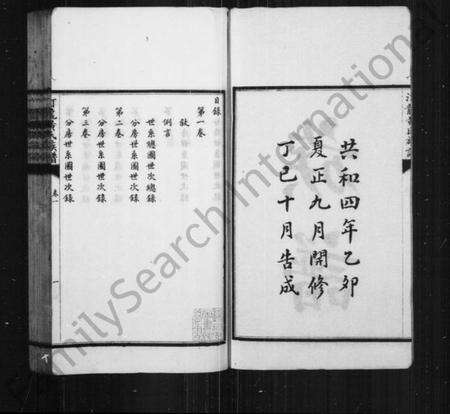 共和四年乙卯
夏正九月開修
丁巳十月告成
目錄
第一卷
敘
例言
世系總圖世次總錄
分房世系圖世次錄
第二卷
分房世系圖世次錄
第三卷
分房世系圖世次錄
卷一
一
FamilySearch International